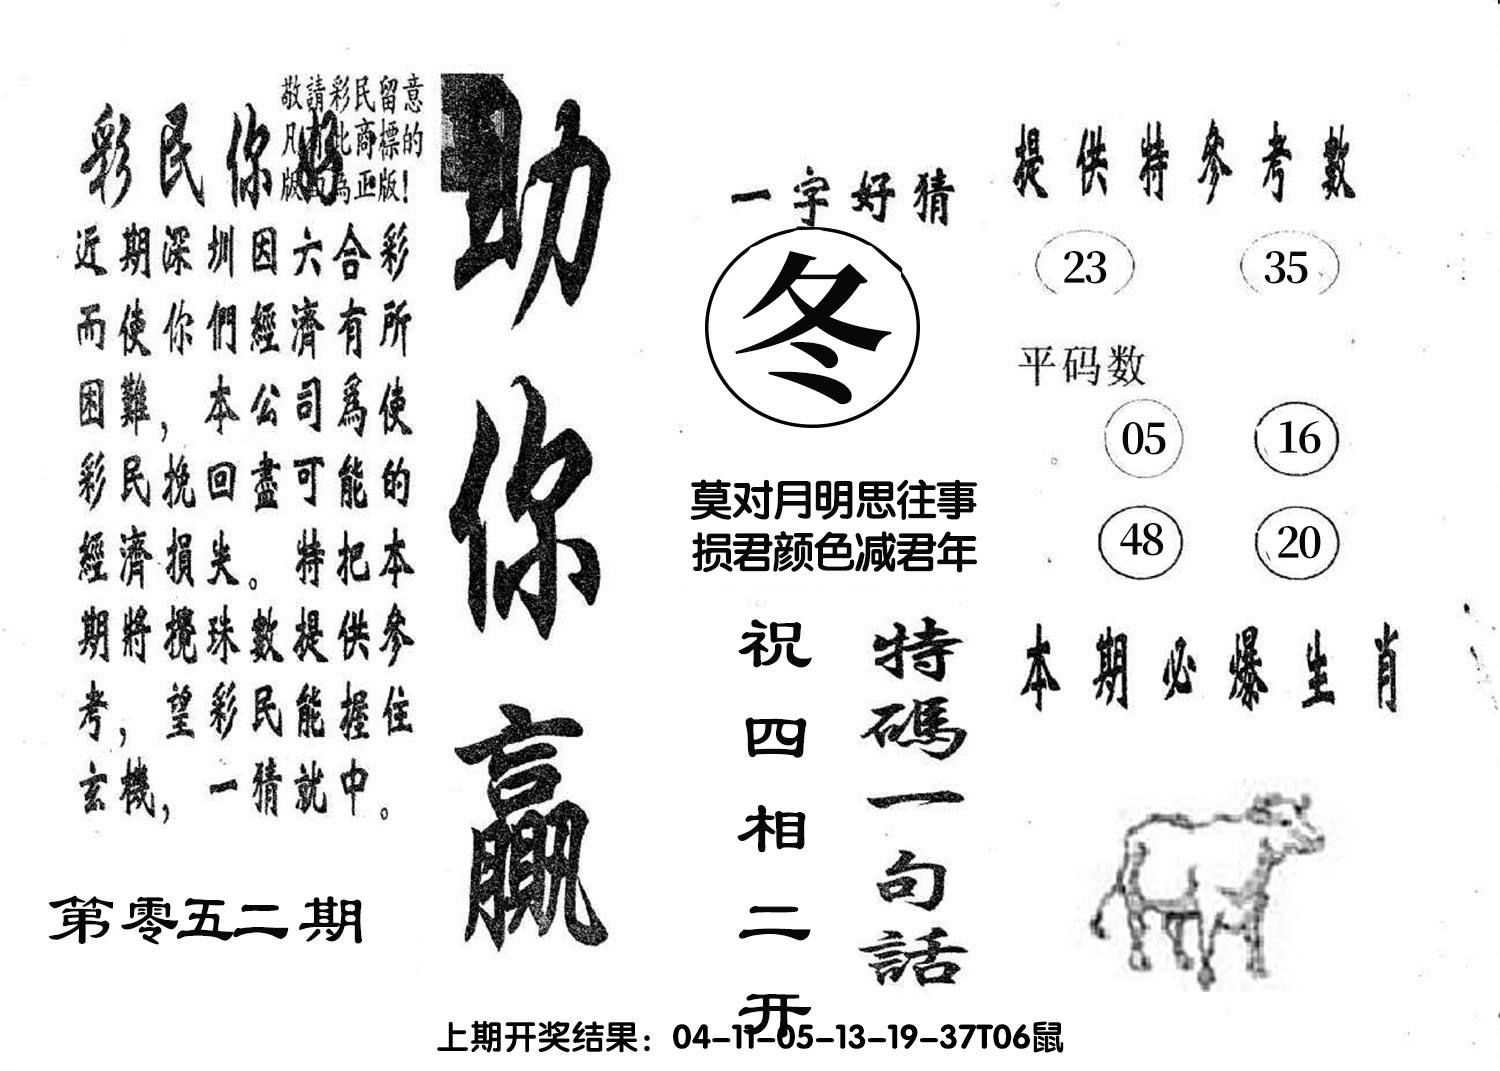 敬請彩民留意
凡有此商標的
版面為正版！
彩民你好
近期深圳因六合彩
而使你們經濟有所
困難，本公司爲使
彩民挽回盡可能的
經濟損失。特把本
期將攪珠數提供參
考，望彩民能握住
玄機，一猜就中。
第零五二期
助你贏
一字好猜
冬
莫对月明思往事
损君颜色减君年
特碼一句話
祝四相二开
提供特參考數
23 35
平码数
05 16
48 20
本期必爆生肖
上期开奖结果：04-11-05-13-19-37T06鼠